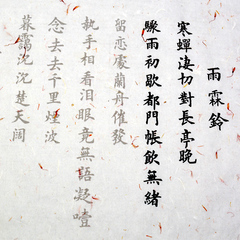 雨霖鈴
寒蟬淒切對長亭晚
驟雨初歇都門帳飲無緒
留戀處蘭舟催發
執手相看淚眼竟無語凝噎
念去去千里煙波
暮靄沈沈楚天闊